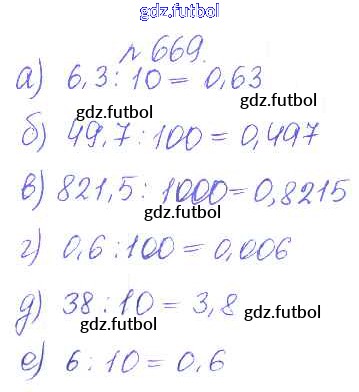 gdz.futbol
№ 669.
а) 6,3 : 10 = 0,63
gdz.futbol
б) 49,7 : 100 = 0,497
gdz.futbol
в) 821,5 : 1000 = 0,8215
gdz.futbol
г) 0,6 : 100 = 0,006
д) 38 : 10 = 3,8
gdz.futbol
gdz.futbol
е) 6 : 10 = 0,6
gdz.futbol